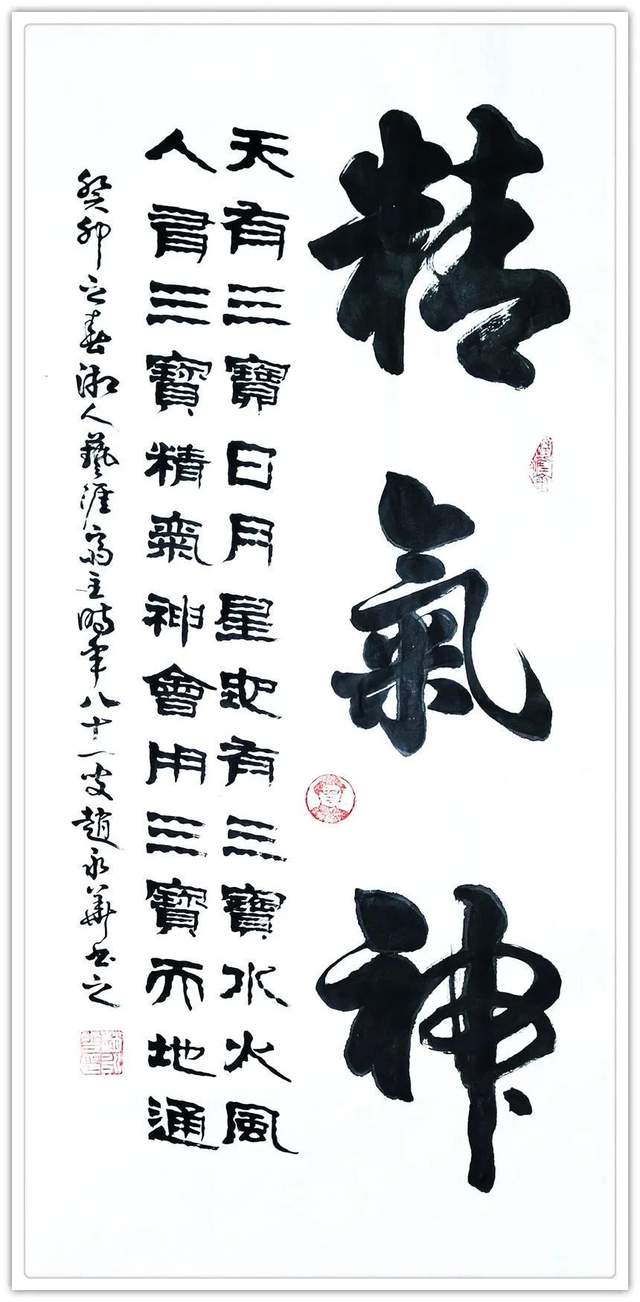 精氣神
天有三寶日月星地有三寶水火風
人有三寶精氣神會用三寶天地通
癸卯之春湘人藝涯齋主時年八十一叟趙永華書之